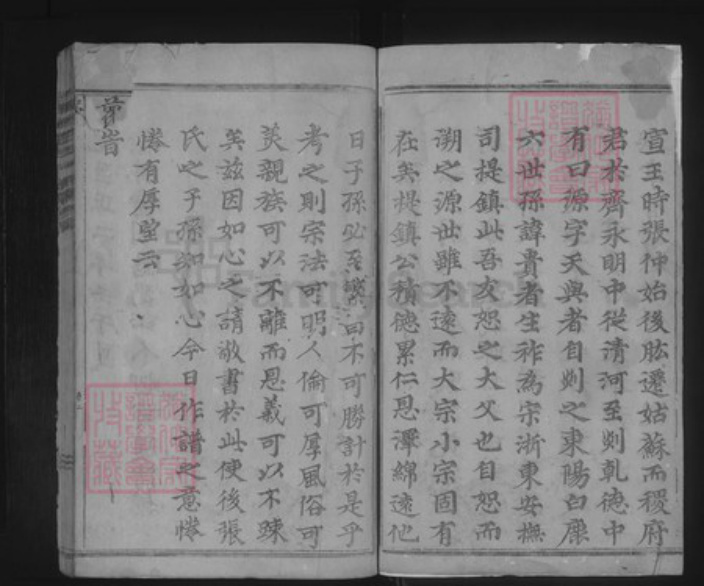 宣王時張仲始後肱遷姑蘇而稷府
君於齊永明中從清河至剡乾德中
有曰源字天與者自剡之東陽白鹿
六世孫諱貴者生祚為宋浙東安撫
司提鎮此吾友恕之大父也自恕而
溯之源世雖不遠而大宗小宗固有
在矣提鎮公積德累仁恩澤綿遠他
日子孫必至 曰不可勝計於是乎
考之則宗法可明人倫可厚風俗可
美親族可以不離而恩義可以不踈
矣茲因如心之請敬書於此使後張
氏之子孫知如心今日作譜之意惓
惓有厚望云
FamilySearch